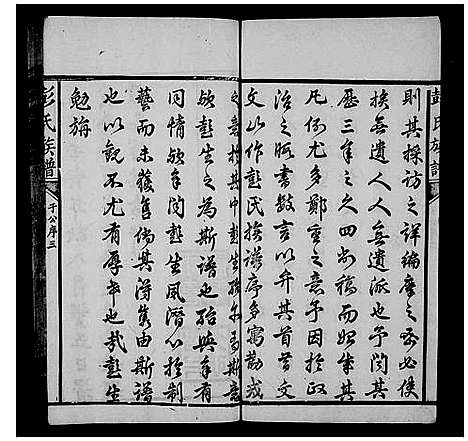 彭氏族譜
則其採訪之詳編之必使
族無遺人人無遺派也予閱其
歷三年之久四易稿而始成其
凡例尤多鄭重之意予因於政
治之暇書數言以弁其首昔
文山作彭氏族譜序多寓勸戒
之意於其中彭生殆亦斯意
歟彭生之為斯譜也殆與予
同情歟予聞彭生夙潛心於制
藝而未獲售倘其得雋由斯譜
也以觀不尤有厚幸也哉彭生
勉旃
彭氏族譜
于公序三